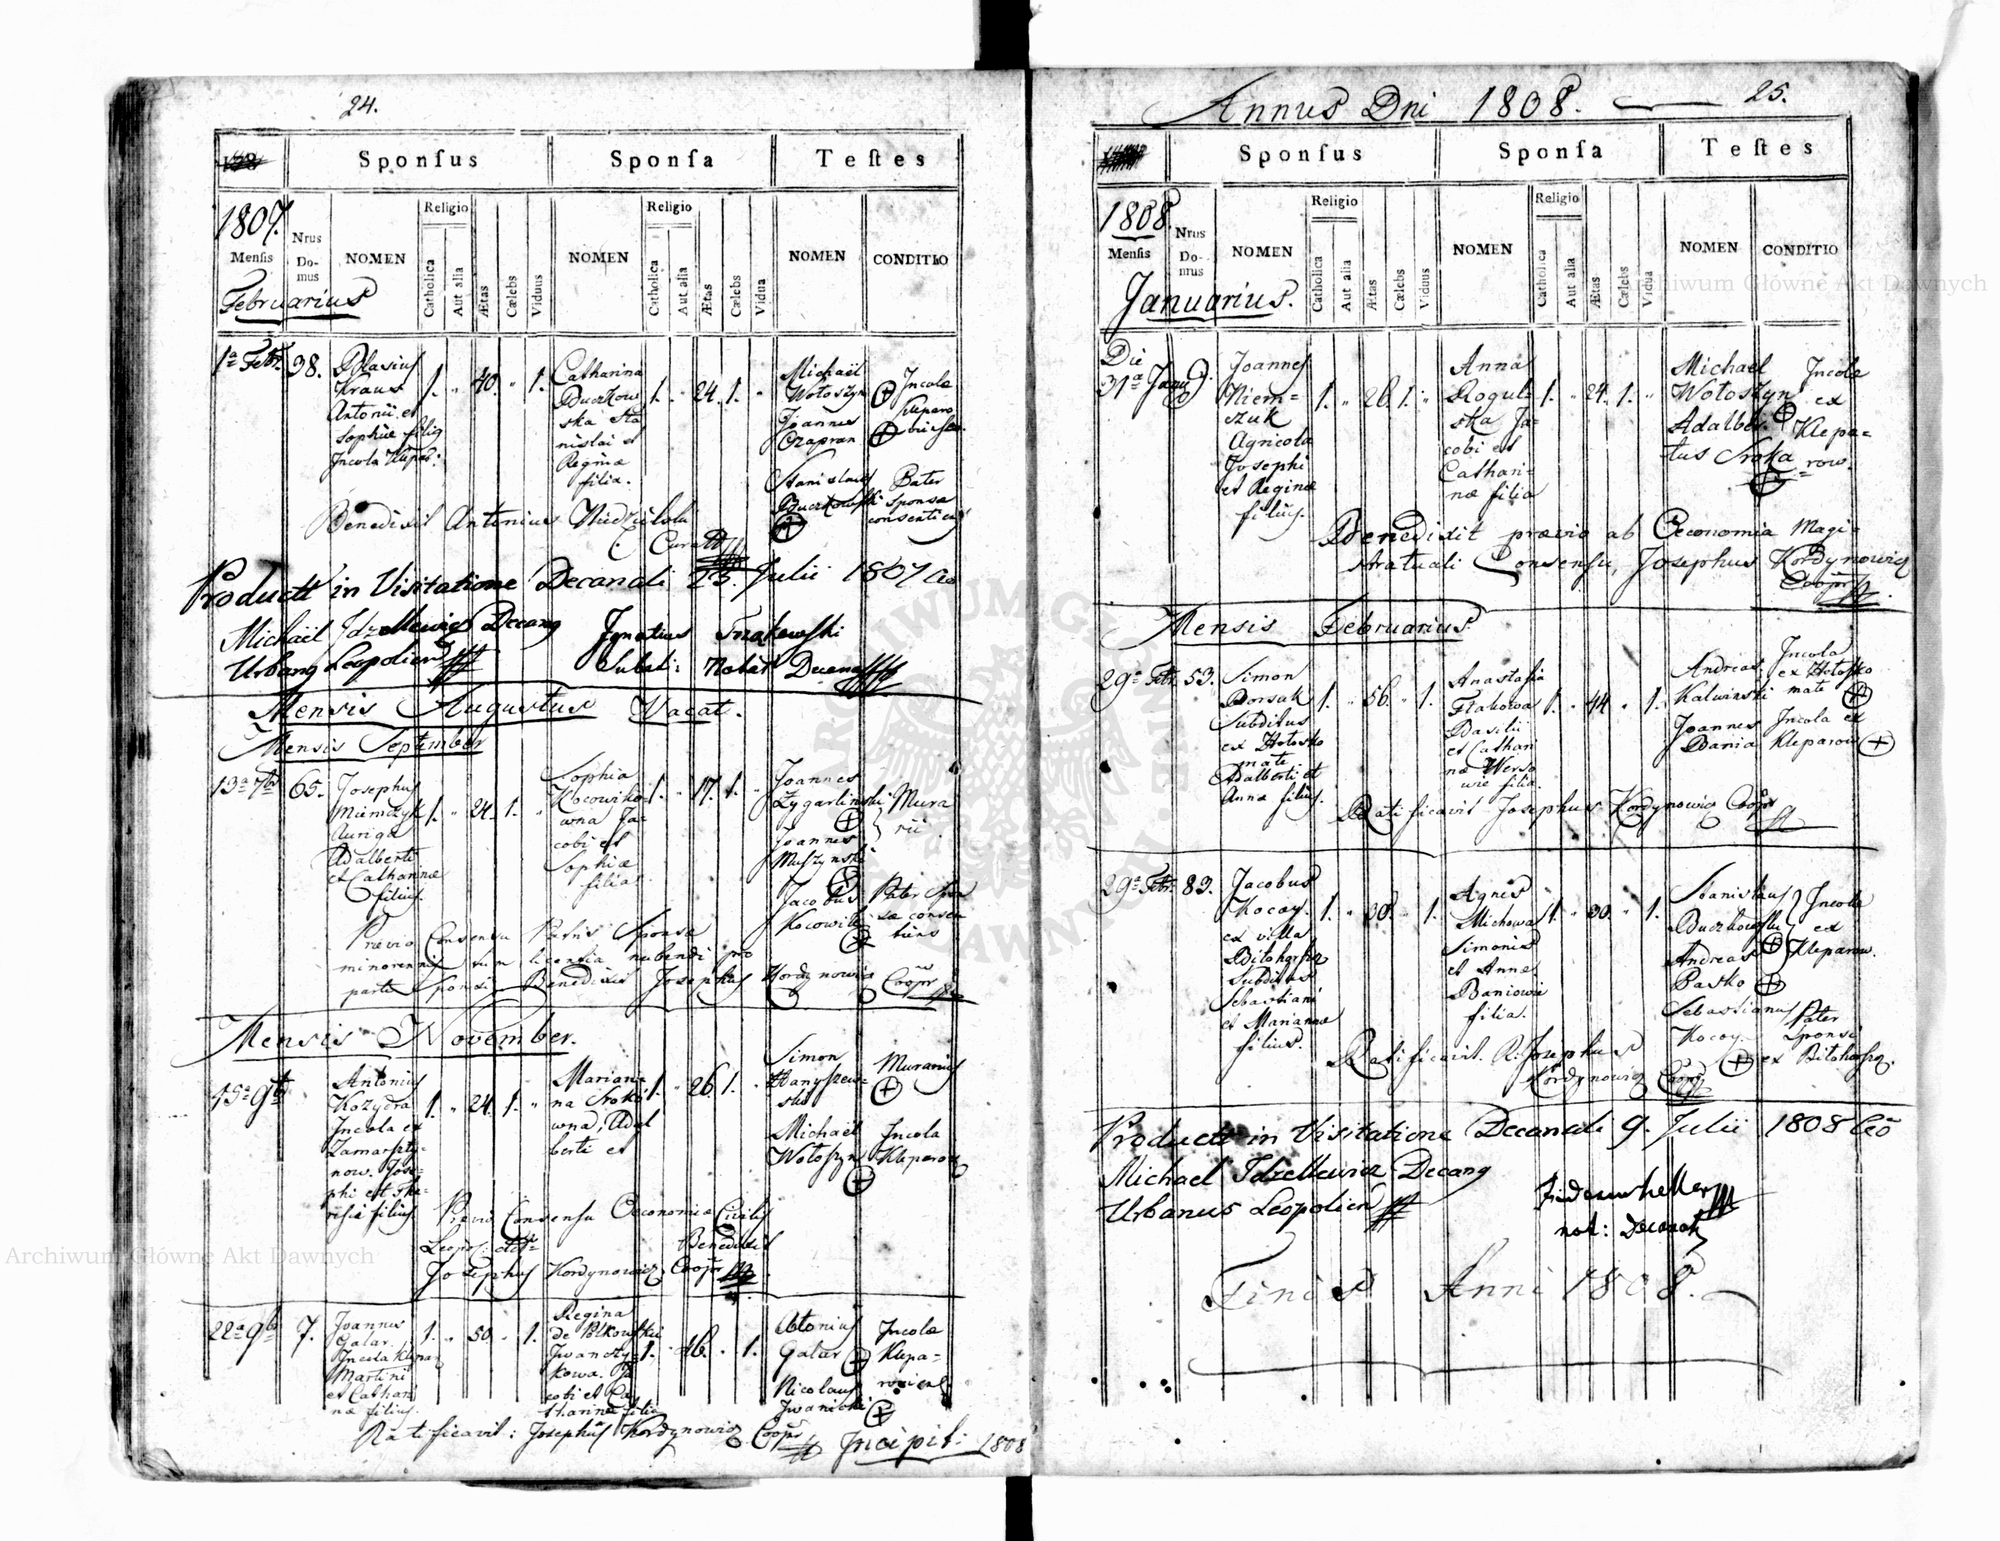 24.
Sponsus Sponsa Testes
1807.
Mensis
Februarius
Nrus Domus
NOMEN
Religio
Catholica
Aut alia
Ætas
Cælebs
Viduus
NOMEN
Religio
Catholica
Aut alia
Ætas
Cælebs
Vidua
NOMEN
CONDITIO
1ª Febr. 38.
Blasius
Kraus
Antonii et
Sophiæ filiq
Incola Klepar:
1. " 40. " 1.
Catharina
Buczkow
ska Sta
nislai et
Reginæ
filia.
1. " 24. 1. "
Michaël
Wołoszyn
Joannes
Czapran
Stanislaus
Buczkowski
Incolæ
Kleparo
Pater
sponsæ
consentiens
Benedixit Antonius
Curatq
Product in Visitatione Decanali 23. Julii 1807 Ceo
Michaël Idzellewicz Decanq
Urbanq Leopolien
Ignatius
Mensis Augustus Vacat.
Mensis September
13ª 7br 65.
Josephus
Niemczyk
Auriga
Adalberti
et Catharinæ
filius.
1. " 24. 1. "
Sophia
Kocowiko
wna Ja
cobi et
Sophiæ
filia.
1. " 17. 1. "
Joannes
Zygarlinski
Joannes
Muszynski
Jacobus
Kocowik
Mura
rii
Pater Spon
sæ consen
tiens
Prævio Consensu Patris Sponsæ
minorennis tum licentia nubendi pro
parte Sponsi Benedixit Josephus Kordynowicz Coopr
Mensis November.
15ª 9br
Antonius
Kozydra
Incola ex
Zamarsty-
now. Jose-
phi et The-
resiæ filius
1. " 24. 1. "
Marian-
na Sroko
wna, Adal
berti et
1. " 26. 1. "
Simon
Hanyszew-
ski
Michaël
Wołoszyn
Murarius
Incola
Kleparow
Prævio Consensu Oeconomiæ Civilis
Benedixit
Josephus Kordynowicz Coopr
22ª 9br 7.
Joannes
Gatar
Incola Klepar
Martini
et Cathari
næ filius.
1. " 50. " 1.
Regina
de
Iwanczy-
kowa. Ja
cobi et Ca
tharinæ filia
1. " 46. " 1.
Antonius
Gatar
Nicolaus
Iwanicki
Incolæ
Klepa-
roviens
Ratificavit: Josephus Kordynowicz Coopr
Incipit: 1808
Annus Dni 1808. 25.
Sponsus Sponsa Testes
1808.
Mensis
Januarius.
Nrus Domus
NOMEN
Religio
Catholica
Aut alia
Ætas
Cælebs
Viduus
NOMEN
Religio
Catholica
Aut alia
Ætas
Cælebs
Vidua
NOMEN
CONDITIO
Die
31ª Janu
Joannes
Niem-
szuk
Agricola
Josephi
et Reginæ
filius.
1. " 26. 1. "
Anna
Rogul-
ska Ja-
cobi et
Cathari-
næ filia
1. " 24. 1. "
Michael
Wołoszyn
Adalber-
tus Sroka
Incolæ
ex
Klepa-
row.
Benedixit prævio ab Oeconomia Magi-
stratuali Consensu, Josephus Kordynowicz
Coopr
Mensis Februarius
29ª Febr. 53.
Simon
Borsak
Subditus
ex Hołosko
mate
Adalberti et
Annæ filius.
1. " 56. " 1.
Anastasia
Flakowa
Basilii
et Cathari
næ Werso
wie filia.
1. " 44. " 1.
Andreas
Kalwinski
Joannes
Bania
Incola
ex Hołosko
mate
Incola ex
Kleparow
Ratificavit Josephus Kordynowicz Coopr
29ª Febr. 83.
Jacobus
Kocoy.
ex villa
Biłohorszcz
Subditus
Sebastiani
et Mariannæ
filius.
1. " 30. " 1.
Agnes
Michowa
Simonis
et Annæ
Baniowie
filia.
1. " 30. " 1.
Stanislaus
Buczkowski
Andreas
Basko
Sebastianus
Kocoy.
Incolæ
ex
Kleparow.
Pater
Sponsi
ex Biłohorszcz.
Ratificavit. R. Josephus
Kordynowicz Coopr
Product in Visitatione Decanali 9. Julii 1808 Ceo
Michael Idzellewicz Decanq
Urbanus Leopolien
not: Decanat
Finis Anni 1808.
Archiwum Główne Akt Dawnych
Archiwum Główne Akt Dawnych
ARCHIWUM GŁÓWNE AKT DAWNYCH